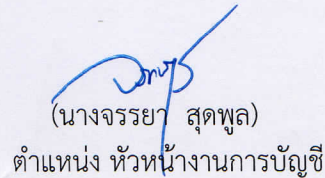 (นางจรรยา สุดพูล)
ตำแหน่ง หัวหน้างานการบัญชี